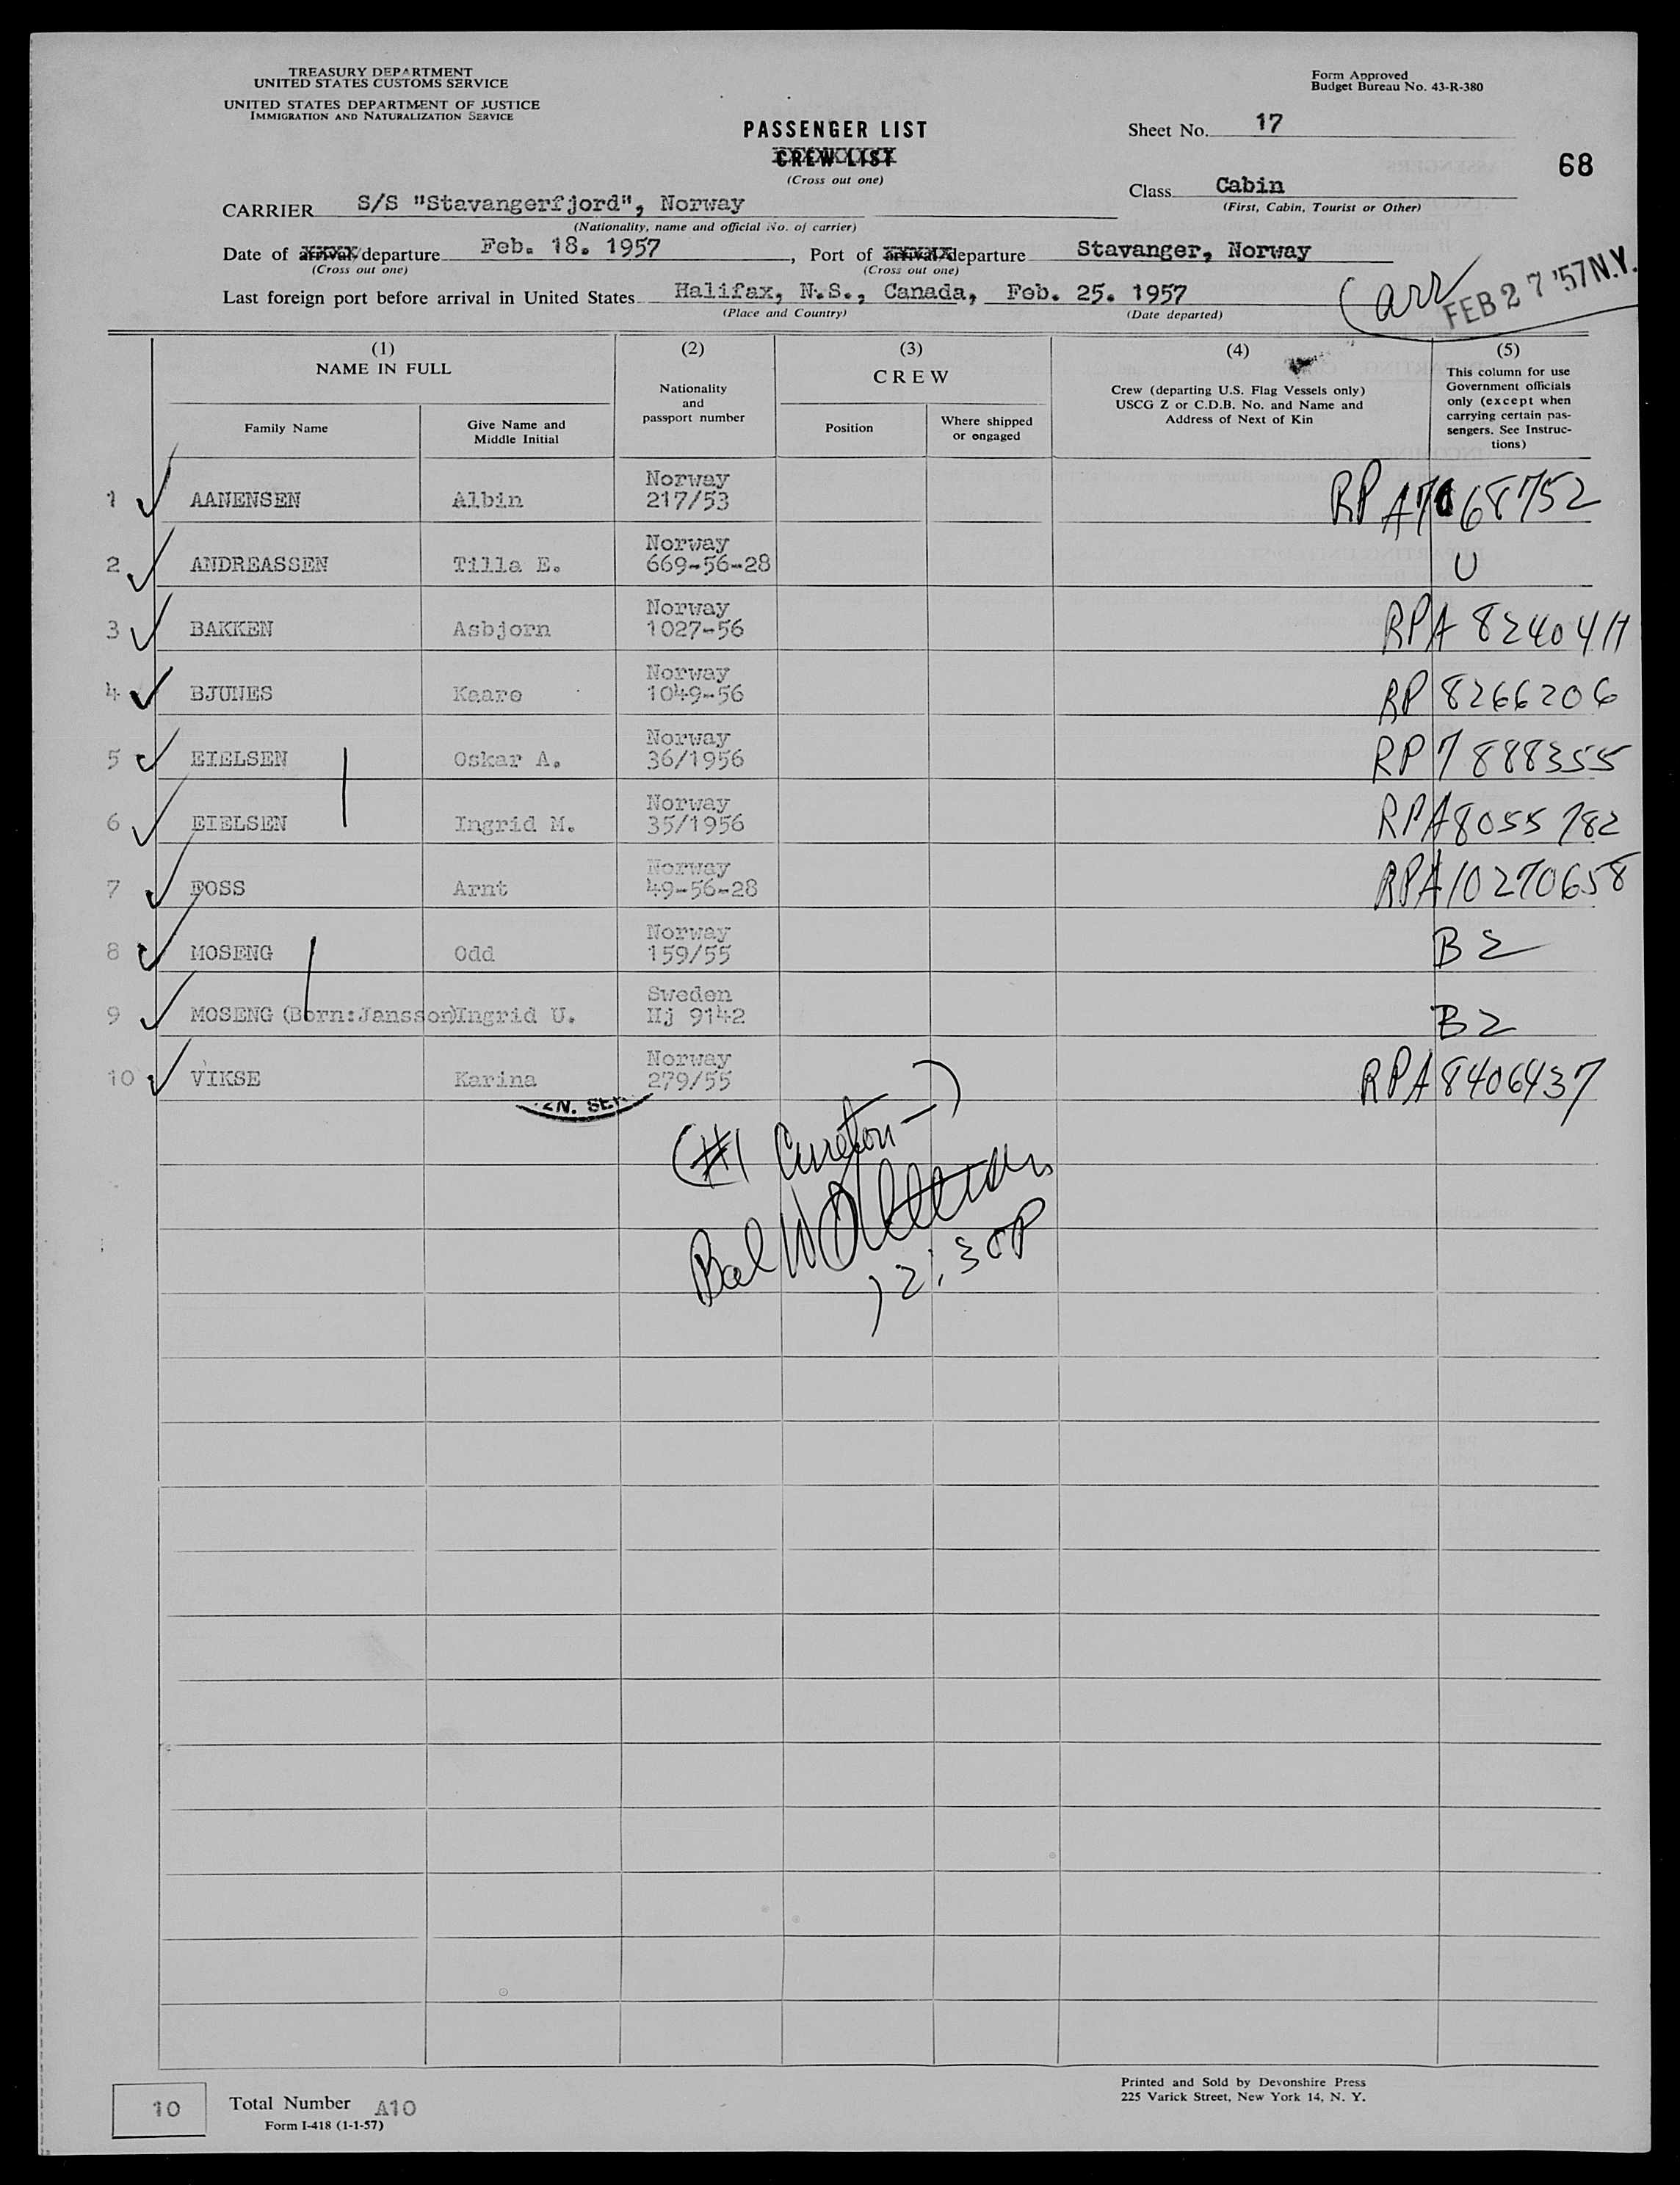 TREASURY DEPARTMENT
UNITED STATES CUSTOMS SERVICE
UNITED STATES DEPARTMENT OF JUSTICE
IMMIGRATION AND NATURALIZATION SERVICE
Form Approved
Budget Bureau No. 43-R-380
PASSENGER LIST
CREW LIST
(Cross out one)
Sheet No. 17
68
Class Cabin
(First, Cabin, Tourist or Other)
CARRIER S/S "Stavangerfjord", Norway
(Nationality, name and official No. of carrier)
Date of arrival/departure Feb. 18. 1957, Port of arrival/departure Stavanger, Norway
(Cross out one) (Cross out one)
Last foreign port before arrival in United States Halifax, N.S., Canada, Feb. 25. 1957
(Place and Country) (Date departed)
(arr FEB 27 '57 N.Y.
(1) (2) (3) (4) (5)
NAME IN FULL
Family Name
Give Name and
Middle Initial
Nationality
and
passport number
CREW
Position
Where shipped
or engaged
Crew (departing U.S. Flag Vessels only)
USCG Z or C.D.B. No. and Name and
Address of Next of Kin
This column for use
Government officials
only (except when
carrying certain pas-
sengers. See Instruc-
tions)
1 AANENSEN Albin Norway 217/53 RP
2 ANDREASSEN Tilla E. Norway 669-56-28 U
3 BAKKEN Asbjorn Norway 1027-56 RPA 8240411
4 BJUNES Kaare Norway 1049-56 RP 8266206
5 EIELSEN Oskar A. Norway 36/1956 RP 7888355
6 EIELSEN Ingrid M. Norway 35/1956 RPA 8055782
7 FOSS Arnt Norway 49-56-28 RPA 10270658
8 MOSENG Odd Norway 159/55 B2
9 MOSENG (Born:Jansson) Ingrid U. Sweden Hj 9142 B2
10 VIKSE Karina Norway 279/55 RPA 8406437
(#1 Cureton-)
12:30P
10
Total Number A10
Form I-418 (1-1-57)
Printed and Sold by Devonshire Press
225 Varick Street, New York 14, N. Y.